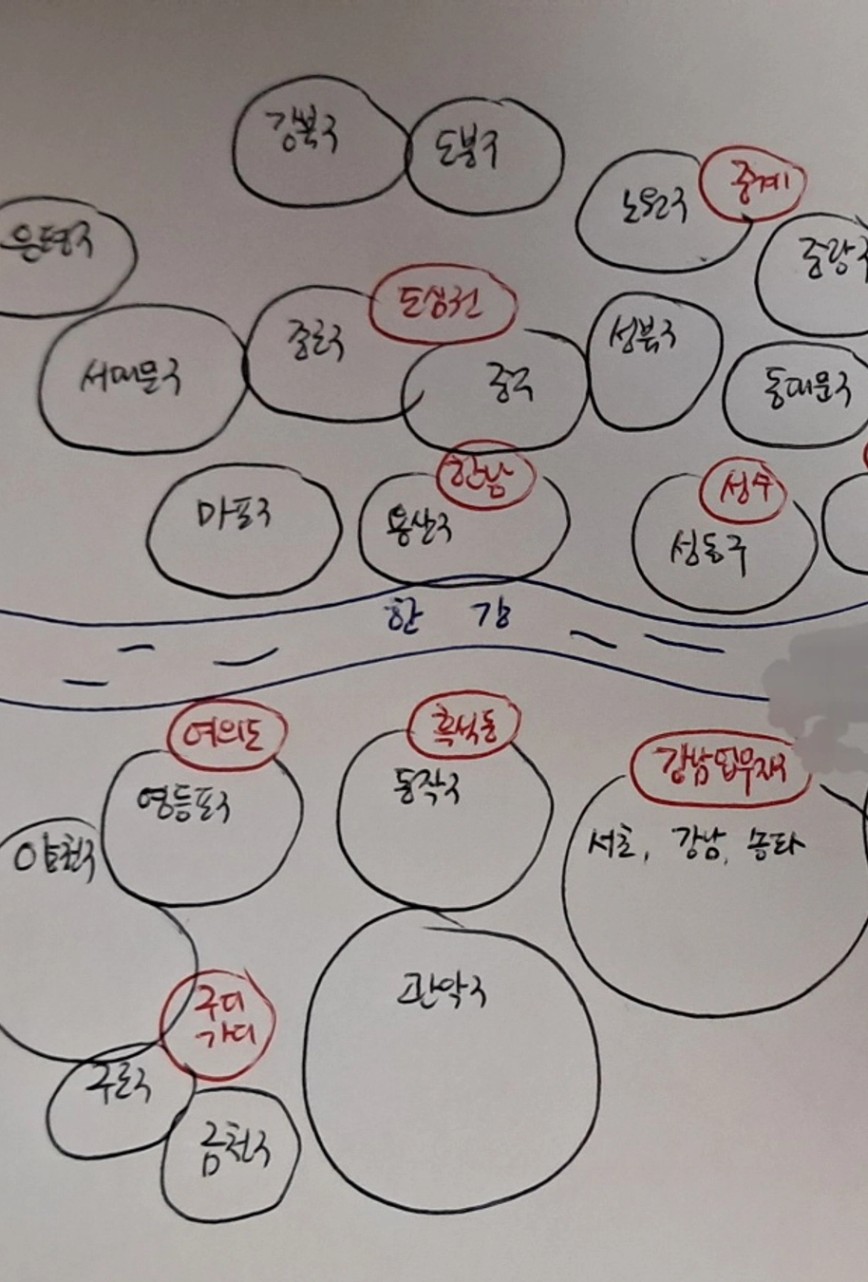 강북구
도봉구
노원구
중계
은평구
중랑구
도심권
종로구
성북구
서대문구
중구
동대문구
한남
성수
마포구
용산구
성동구
한강
여의도
흑석동
강남업무지구
영등포구
동작구
서초, 강남, 송파
양천구
구디
가디
관악구
구로구
금천구